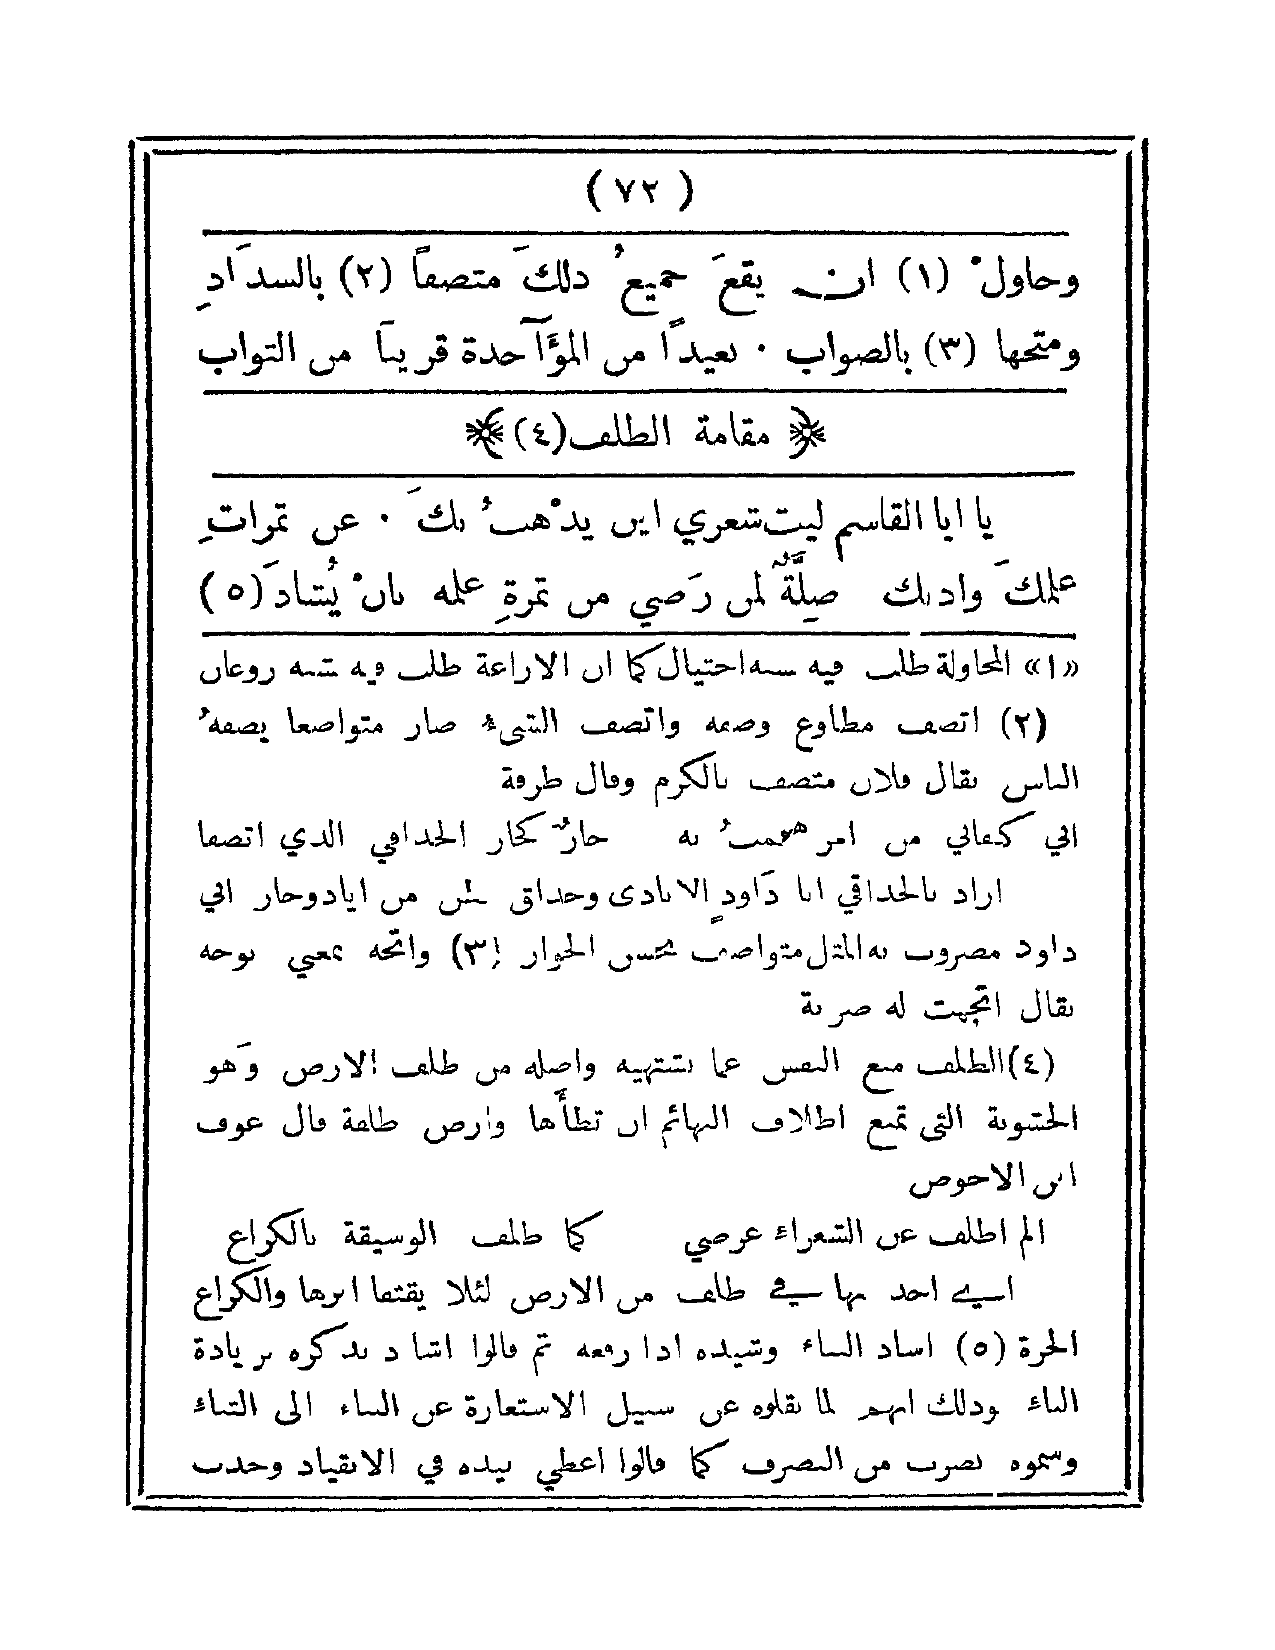 ( ٧٢ )
وحاولْ (١) ان يقعَ جميعُ ذلكَ متصفاً (٢) بالسدَادِ
ومتجها (٣) بالصواب ٠ بعيداً من المؤَآخدة قريباً من الثواب
﴿ مقامة الظلف (٤) ﴾
يا ابا القاسم ليت شعري اين يذْهبُ بكَ ٠ عن ثمراتِ
علمكَ وادبك صِلَّةٌ لمن رَضي من ثمرةِ علمه بانْ يُشادَ (٥)
«١» المحاولة طلب فيه شبه احتيال كما ان الاراغة طلب فيه شبه روغان
(٢) اتصف مطاوع وصفه واتصف الشيء صار متواصفا يصفهُ
الناس يقال فلان متصف بالكرم وقال طرفة
اني كفاني من امر هممتُ به جارٌ كجار الحذافي الذي اتصفا
اراد بالحذاقي ابا دَاودٍ الايادى وحذاق من اياد وجار ابي
داود مضروب به المثل متواصف بحسن الجوار (٣) واتجه بمعنى توجه
يقال اتجهت له ضربة
(٤) الظلف منع النفس عما تشتهيه واصله من ظلف الارض وَهو
الخشونة التي تمنع اظلاف البهائم ان تطأها وارض ظلفة قال عوف
ابن الاحوص
الم اظلف عن الشعراء عرضي كما ظلف الوسيقة بالكراع
اي اخذ بها في ظلف من الارض لئلا يقتفا اثرها والكراع
الحرة (٥) اشاد البناء وشيده اذا رفعه ثم قالوا اشا د بذكره بز يادة
الباء وذلك انهم لما نقلوه عن سبيل الاستعارة عن البناء الى الثناء
وسموه بضرب من التصرف كما قالوا اعطي بيده في الانقياد وجذب